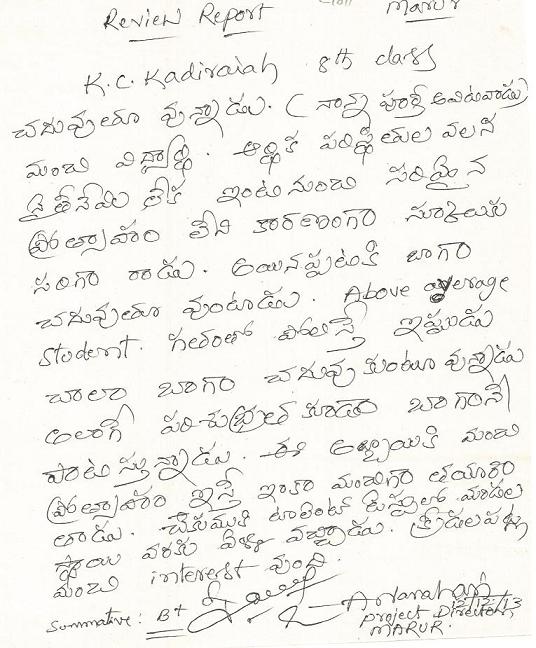 Review Report MARUR
K.C. Kadiraiah 8th class
చదువుతూ వున్నాడు. (నాన్న పూర్తి అవిటివాడు)
మంచి విద్యార్థి. ఆర్థిక పరిస్థితుల వలన
స్తోమత లేక ఇంటి నుంచి సరియైన
ప్రోత్సాహం లేని కారణంగా స్కూలుకు
సరిగా రాడు. అయినప్పటికి బాగా
చదువుతూ వుంటాడు. Above average
Student. గతంతో పోలిస్తే ఇప్పుడు
చాలా బాగా చదువు కుంటూ వున్నాడు
అలాగే పరిశుభ్రత కూడా బాగానే
పాటిస్తున్నాడు. ఈ అబ్బాయికి మంచి
ప్రోత్సాహం ఇస్తే ఇంకా మంచిగా తయారవు
తాడు. చెకుముకి టాలెంట్ టెస్టులో మండల
స్థాయి వరకు వెళ్ళి వచ్చాడు. క్రీడలపట్ల
మంచి interest వుంది.
Summative: B+ 12/12/13
Project Director,
MARUR.